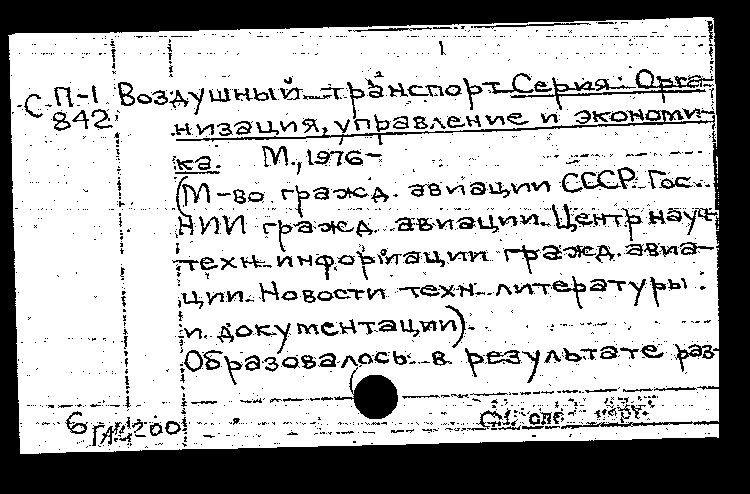 1
С П-1 Воздушный транспорт Серия: Орга-
842 низация, управление и экономи-
ка. М., 1976-
(М-во гражд. авиации СССР. Гос.
НИИ гражд. авиации. Центр науч-
техн. информации гражд. авиа-
ции. Новости техн. литературы
и документации).
Образовалось в результате раз-
6
См. след.